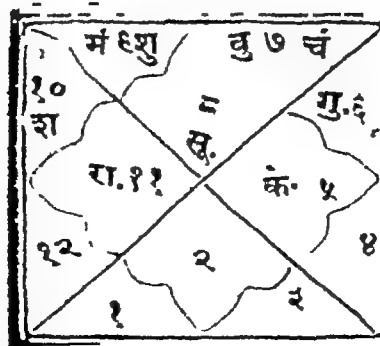 मं ६शु वु ७ चं
१०
श
=
सू.
गु.६
रा.११
के. ५
१२
२
४
१
३